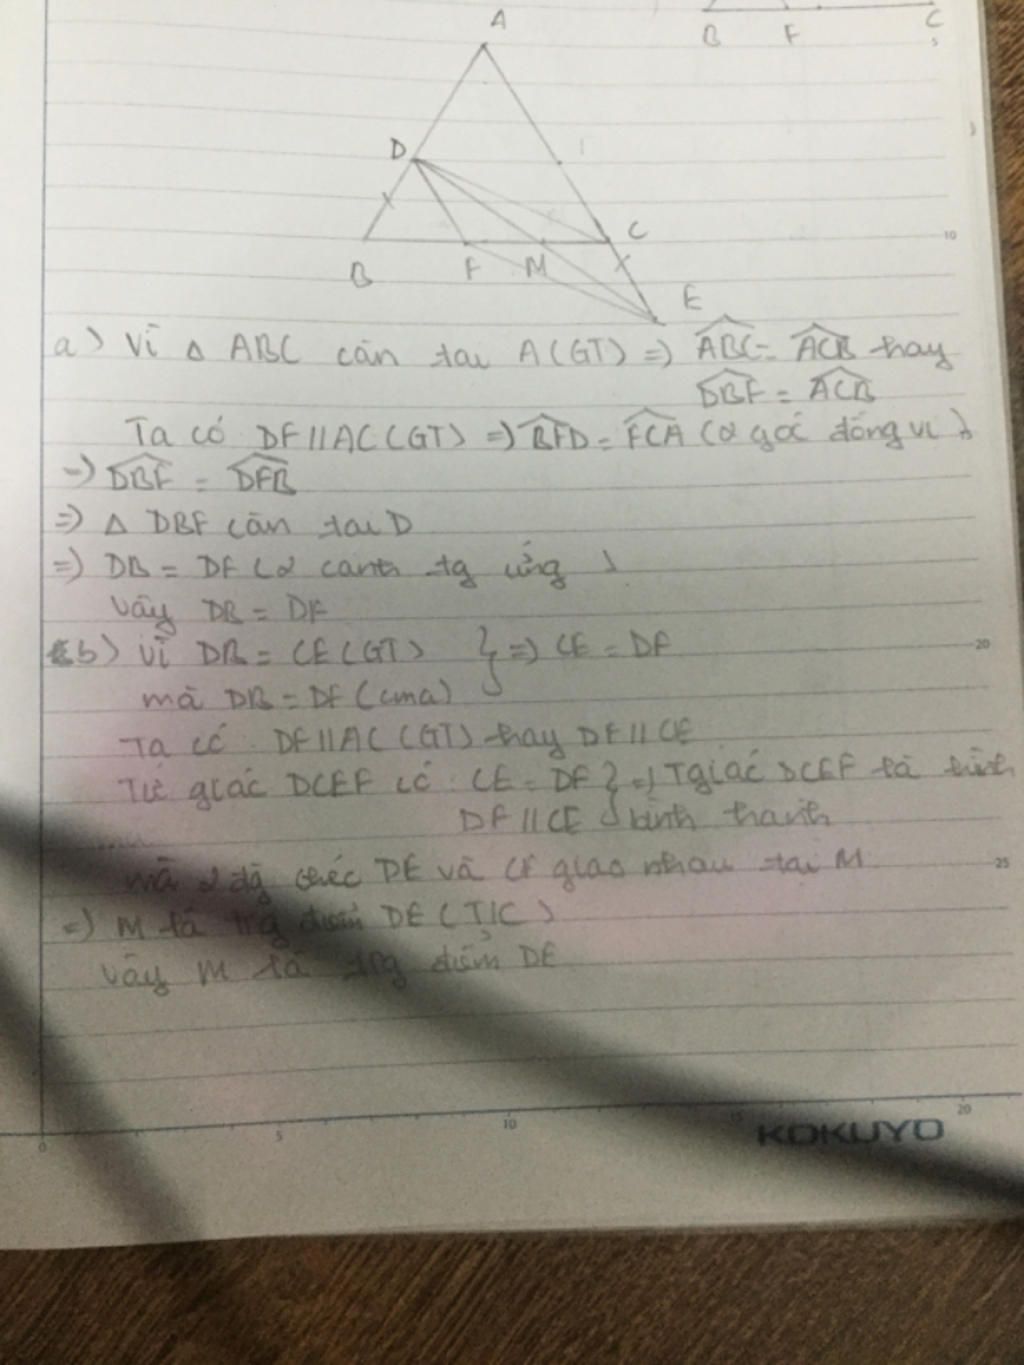 B F C
5
A
D
C
10
B F M
E
a) Vì △ ABC cân tại A (GT) => ABC = ACB hay
DBF = ACB
Ta có DF // AC (GT) => BFD = FCA (2 góc đồng vị)
=> DBF = DFB
=> △ DBF cân tại D
=> DB = DF (2 cạnh tg ứng)
Vậy DB = DF
b) Vì DB = CE (GT) } => CE = DF
20
mà DB = DF (cma)
Ta có: DF // AC (GT) hay DF // CE
Tứ giác DCEF có: CE = DF } => Tgiác DCEF là hình
DF // CE bình hành
mà 2 đg chéo DE và CF giao nhau tại M
25
=> M là trg điểm DE (T/C)
Vậy M là trg điểm DE
0 5 10 15 20
KOKUYO